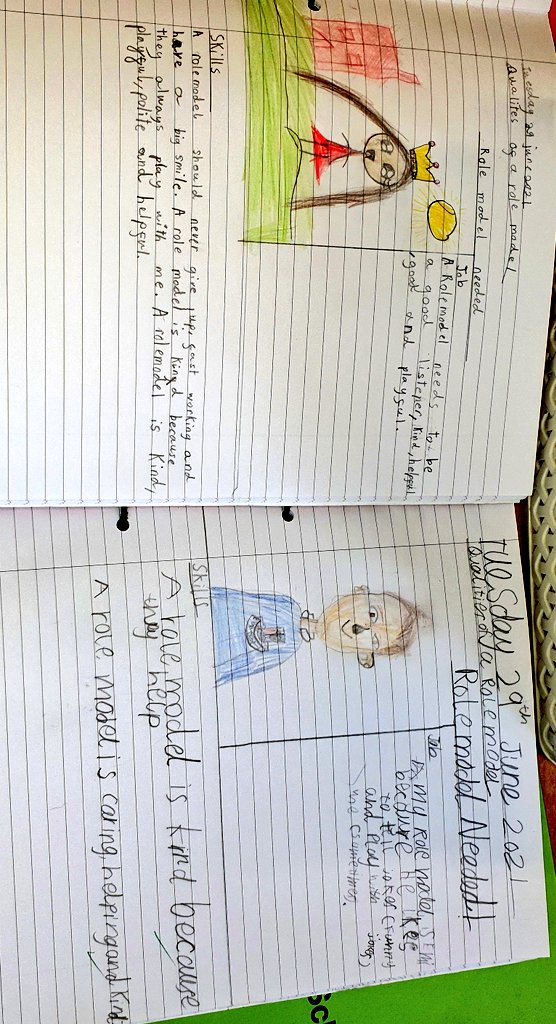 Tuesday 29 june 2021
Qualites of a role model
Role model needed
Job
A Rolemodel needs to be
a good listener, kind, helpful
, good and playful.
Skills
A rolemodel should never give up, fast working and
have a big smile. A role model is kingd because
they always play with me. A rolemodel is kind,
playful, polite and helpful.
Tuesday 29th June 2021
Role model Needed!
Job
my role
because He likes
to tell jokes (funny
jokes)
and Play with
me (sometimes.
Skills
A role model is kind because
they help
A role model is caring, helping and kind
Sc